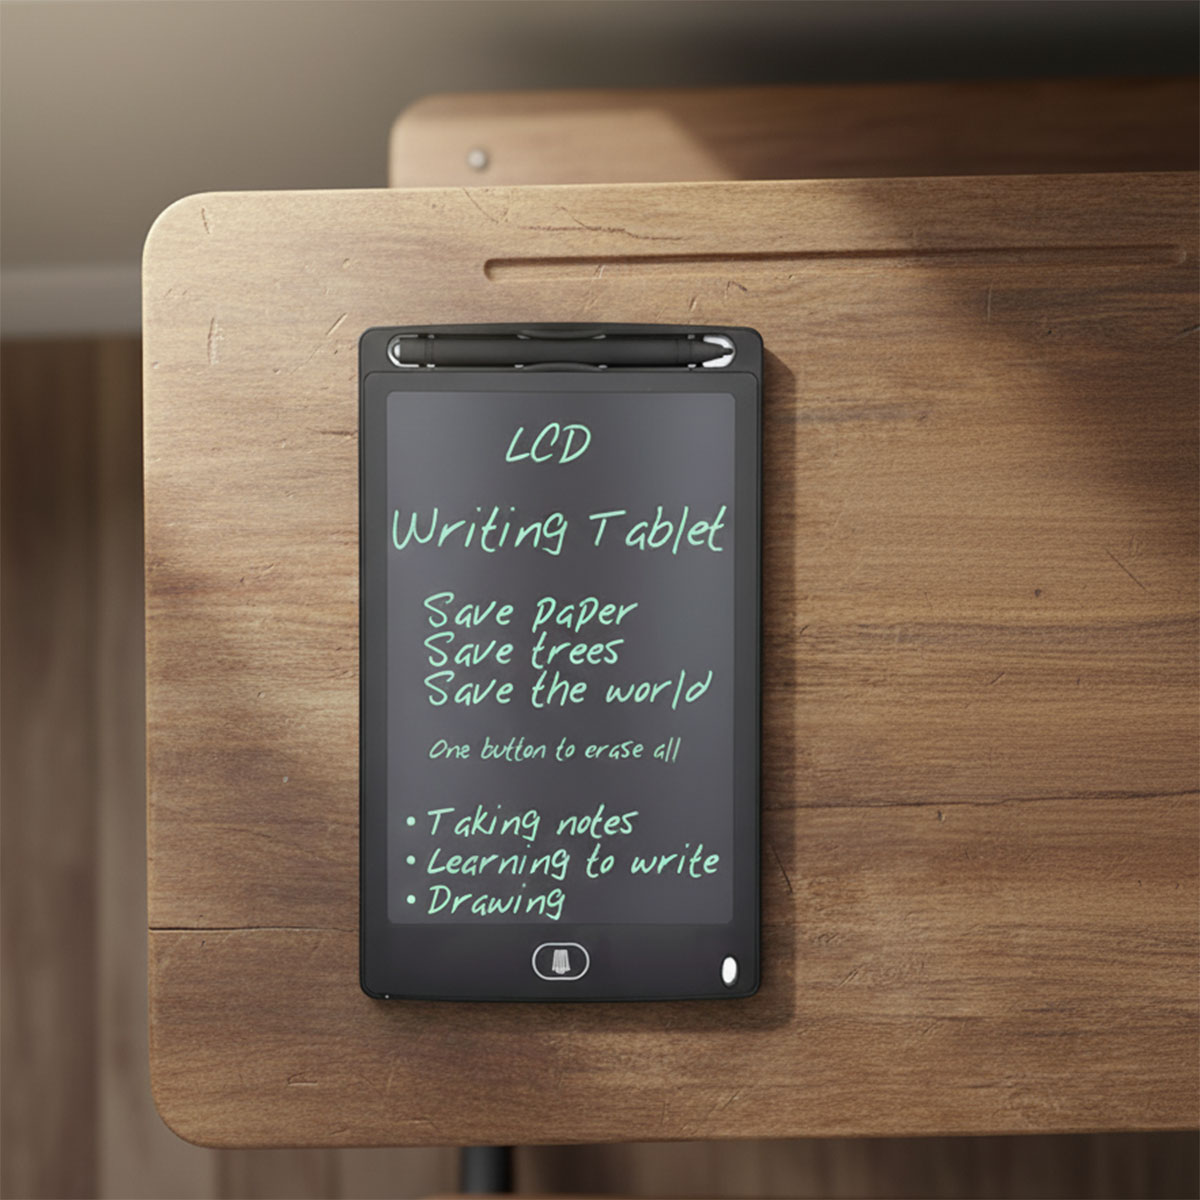 LCD
Writing Tablet
Save paper
Save trees
Save the world
One button to erase all
• Taking notes
• Learning to write
• Drawing